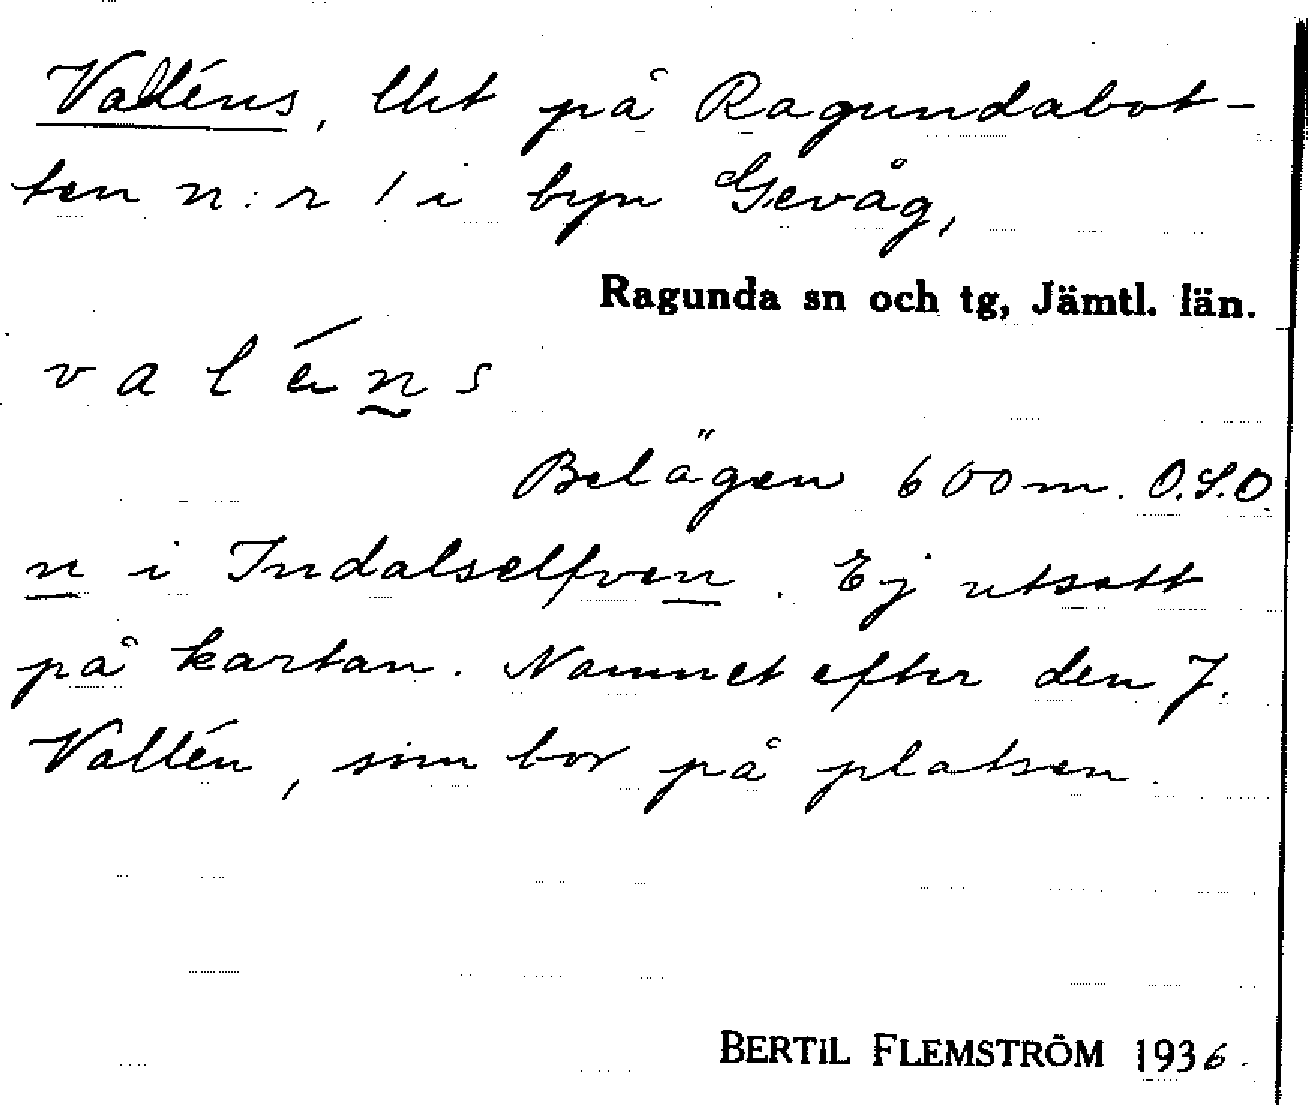 Valléns, lht på Ragundabot-
ten n:r 1 i byn Gevåg,
Ragunda sn och tg, Jämtl. län.
v a l é n s
Belägen 600 m. O.S.O.
n i Indalselfven. Ej utsatt
på kartan. Namnet efter den J.
Vallén, som bor på platsen.
BERTIL FLEMSTRÖM 1936.